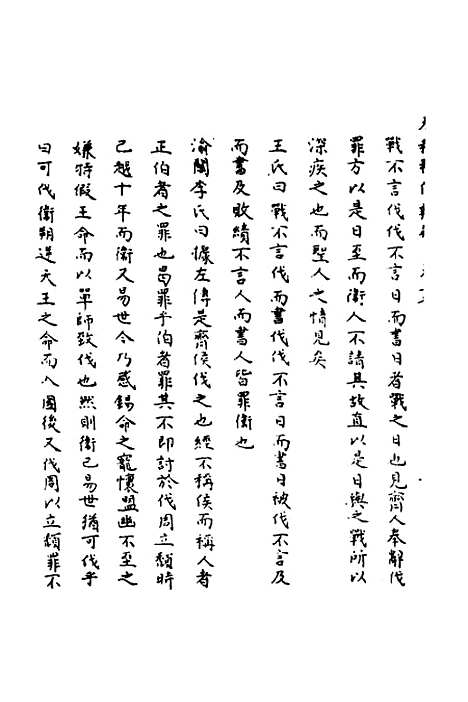 戰不言伐伐不言日而書日者戰之日也見齊人奉辭伐
罪方以是日至而衛人不請其故直以是日與之戰所以
深疾之也而聖人之情見矣
王氏曰戰不言伐而書伐伐不言日而書日被伐不言及
而書及敗績不言人而書人皆罪衛也
渝關李氏曰據左傳是齊侯伐之也經不稱侯而稱人者
正伯者之罪也曷罪乎伯者罪其不即討於伐周立頹時
已越十年而衛又易世今乃感錫命之寵懷盟幽不至之
嫌特假王命而以單師致伐也然則衛已易世猶可伐乎
曰可伐衛朔逆天王之命而入國後又伐周以立頹罪不